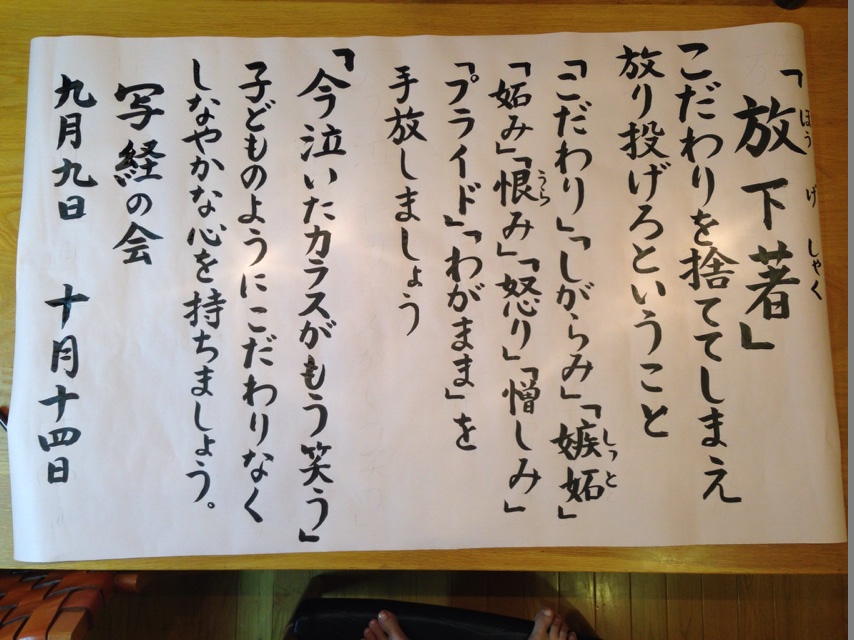 「放下著」
ほう げ しゃく
こだわりを捨ててしまえ
放り投げろということ
「こだわり」「しがらみ」「嫉妬」
しっと
「妬み」「恨み」「怒り」「憎しみ」
うら
「プライド」「わがまま」を
手放しましょう
「今泣いたカラスがもう笑う」
子どものようにこだわりなく
しなやかな心を持ちましょう。
写経の会
九月九日 十月十四日